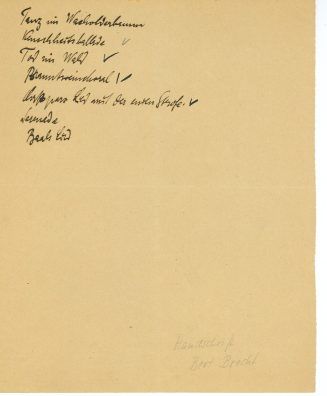 Tanz im Wacholderbaum
Keuschheitsballade ✓
Tod im Wald ✓
Branntweinchoral ! ✓
Lied mit der ersten Strofe. ✓
Serenade
Baals Lied
Handschrift
Bert Brecht